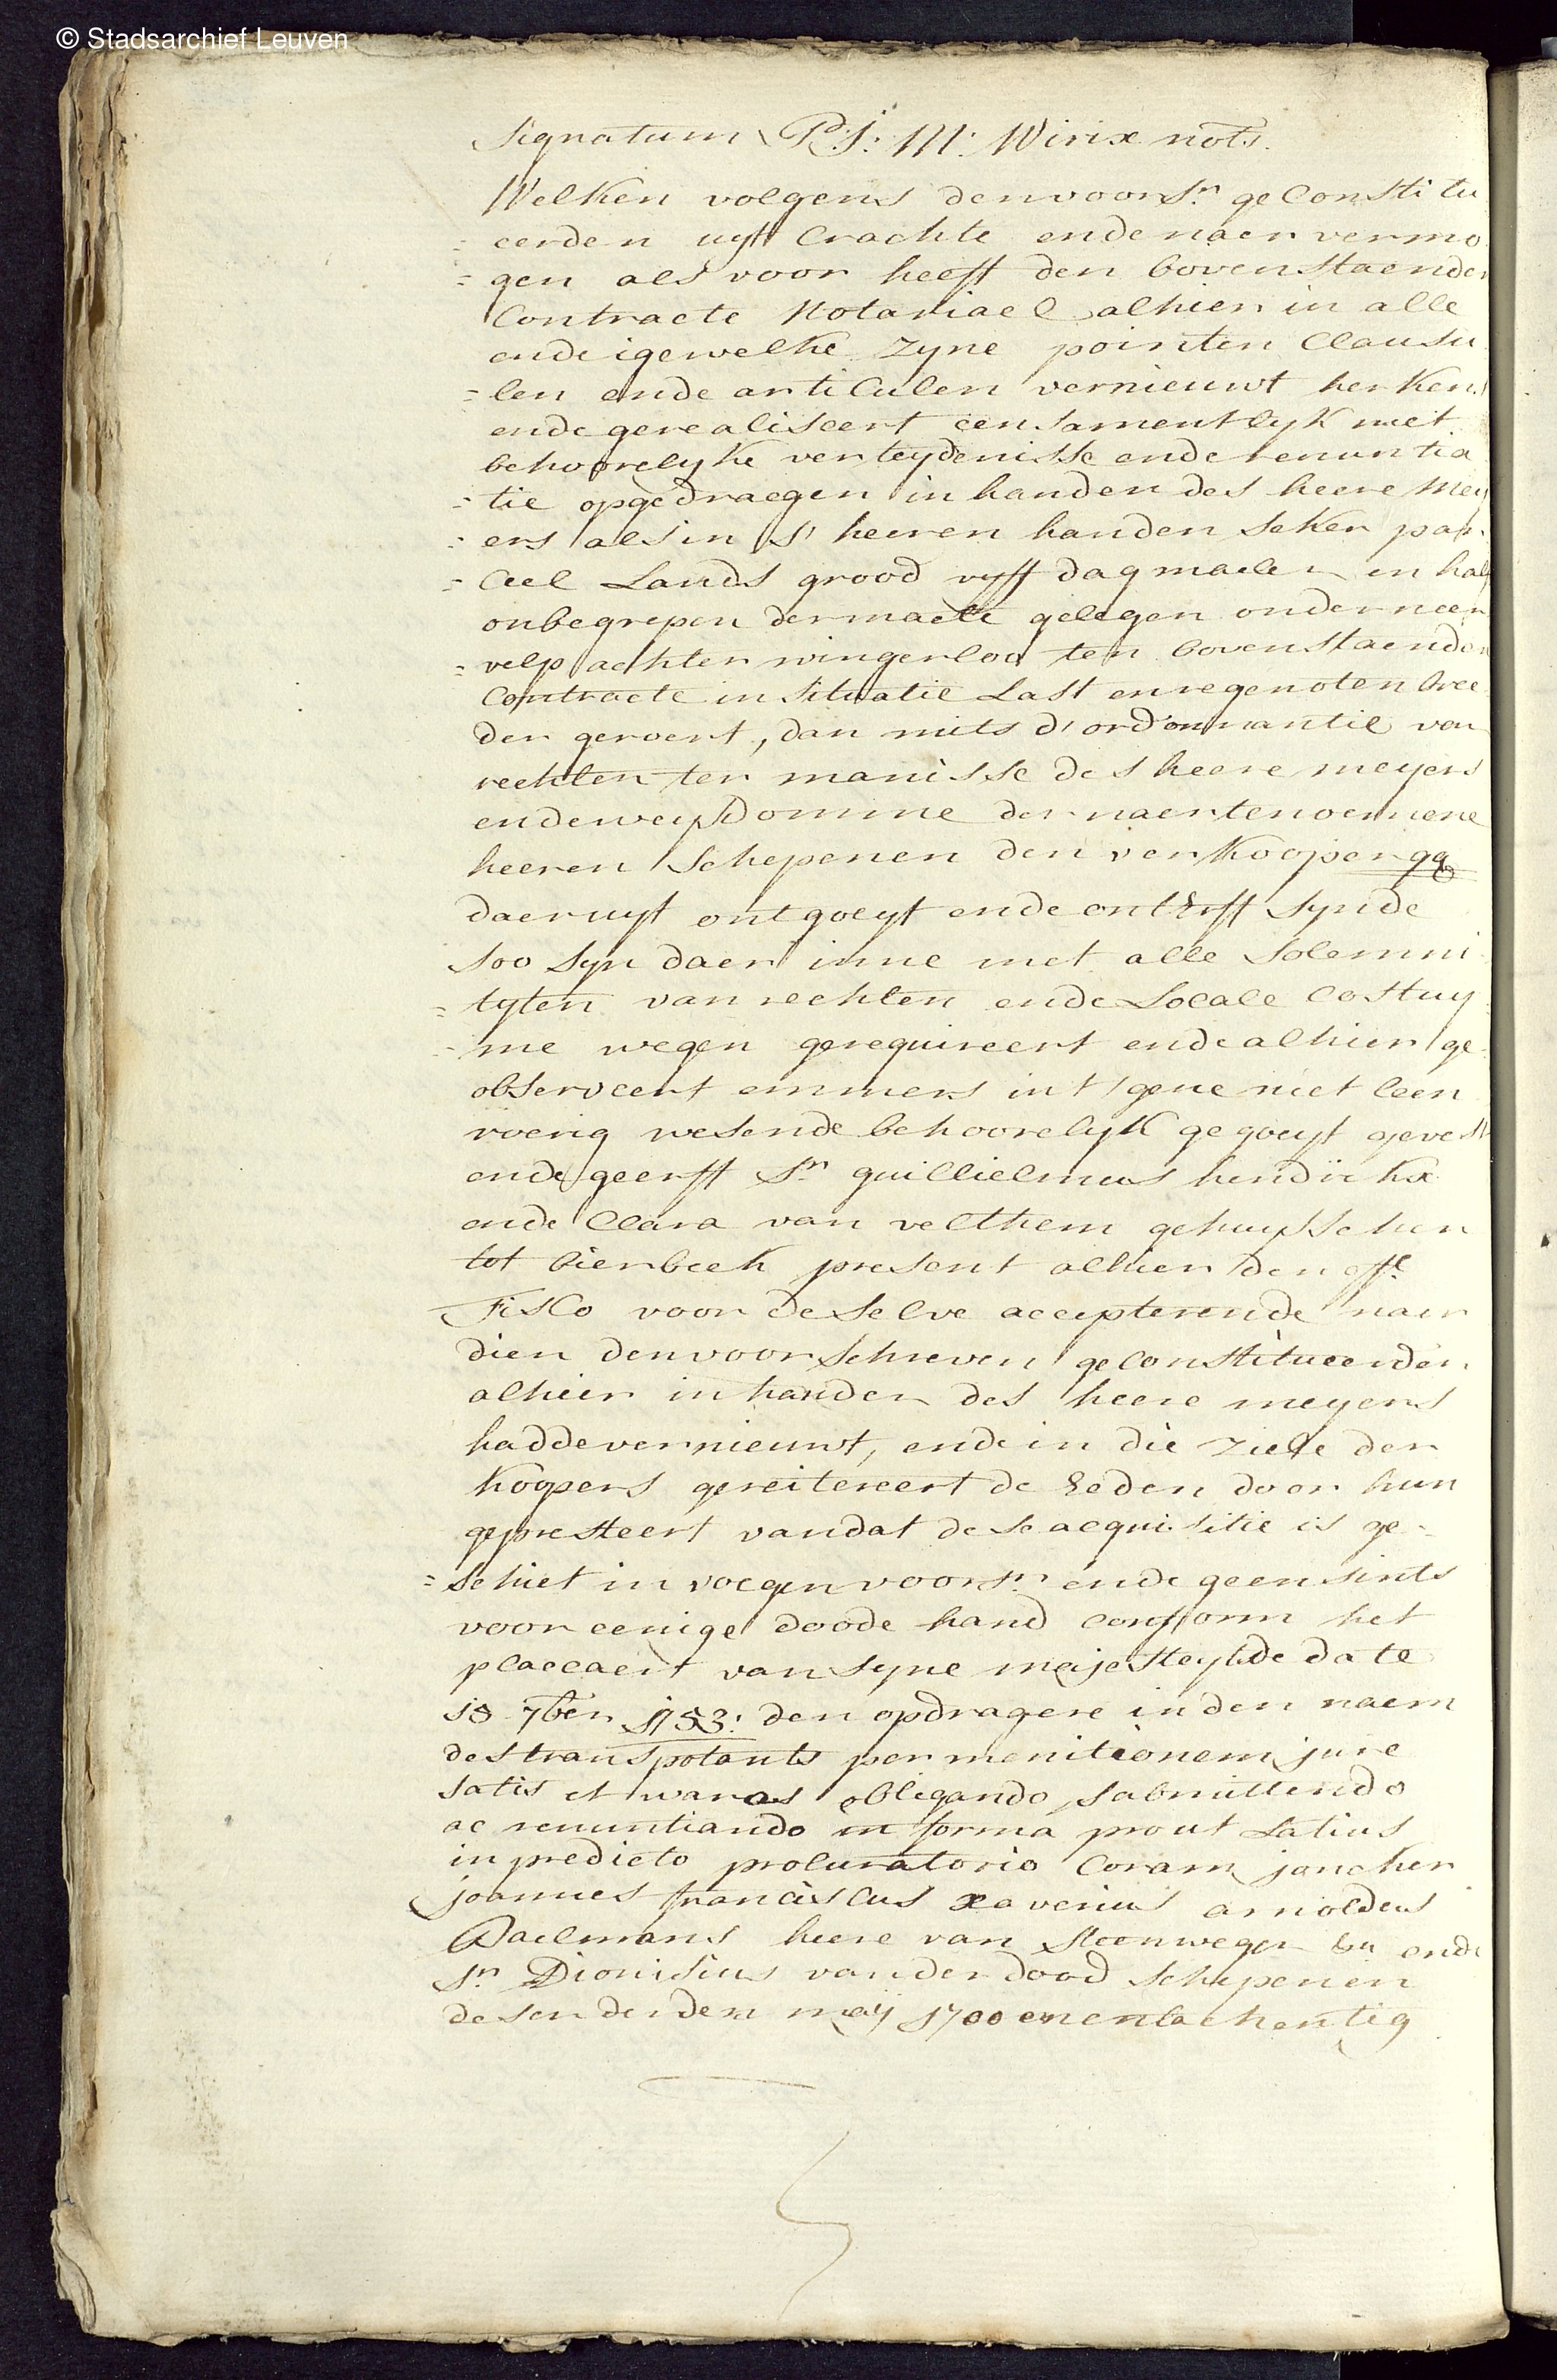 © Stadsarchief Leuven
Signatum P: J: M: Wirix nots.
Welken volgens den voors.n geConstitu
= eerden uyt Crachte ende naer vermo
= gen als voor heeft den bovenstaenden
Contracte Notariael alhier in alle
ende igewelke zyne pointen Clausu
= len ende articulen vernieuwt herkent
ende gerealiseert een samentlyk met
behoorelyke verteydenisse ende renuntia
= tie opgedraegen in handen des heere mey
= ers als in s' heeren handen seker par
= Ceel Lands grood vyff dagmaelen en half
onbegrepen der maete gelegen onder neer
= velp achter wingerloo ten bovenstaenden
Contracte in situatie Last en regenoten bree
der geroert, dan mits d'ordonnantie van
rechten ter manisse des heere meyers
ende weysdomme der naertenoemene
heeren Schepenen den verkooper qq
daer uyt ontgoeyt ende onterft synde
soo syn daer inne met alle solemni
= tyten van rechten ende Locale Costuy
= me wegen gerequireert ende alhier ge
observeert emmers in t' gene niet leen
roerig wesende behoorelyk gegoeyt gevest
ende geerft S.r guillielmus hendrickx
ende Clara van velthem gehuysschen
tot bierbeek present alhier den off.l
Fisco voor de selve accepterende naer
dien den voorschreven geconstitueerden
alhier in handen des heere meyers
hadde vernieuwt, ende in die ziele der
koopers gereitereert de Eeden door hun
gepresteert van dat dese acquisitie is ge
= schiet in voegen voors.n ende geensints
voor eenige doode hand conform het
placcaert van syne majesteyt de date
15 7ber 1753: den opdragere in den naem
des transpotants per monitionem jure
satis et waras obligando, submittendo
ac renuntiando in forma prout Latius
in predicto procuratorio Coram joncker
joannes franciscus xaverius arnoldus
Daelmans heere van Steenwegen &a ende
S.r Dionisius vander dood schepenen
desen derden meij 1700 een en tachentig